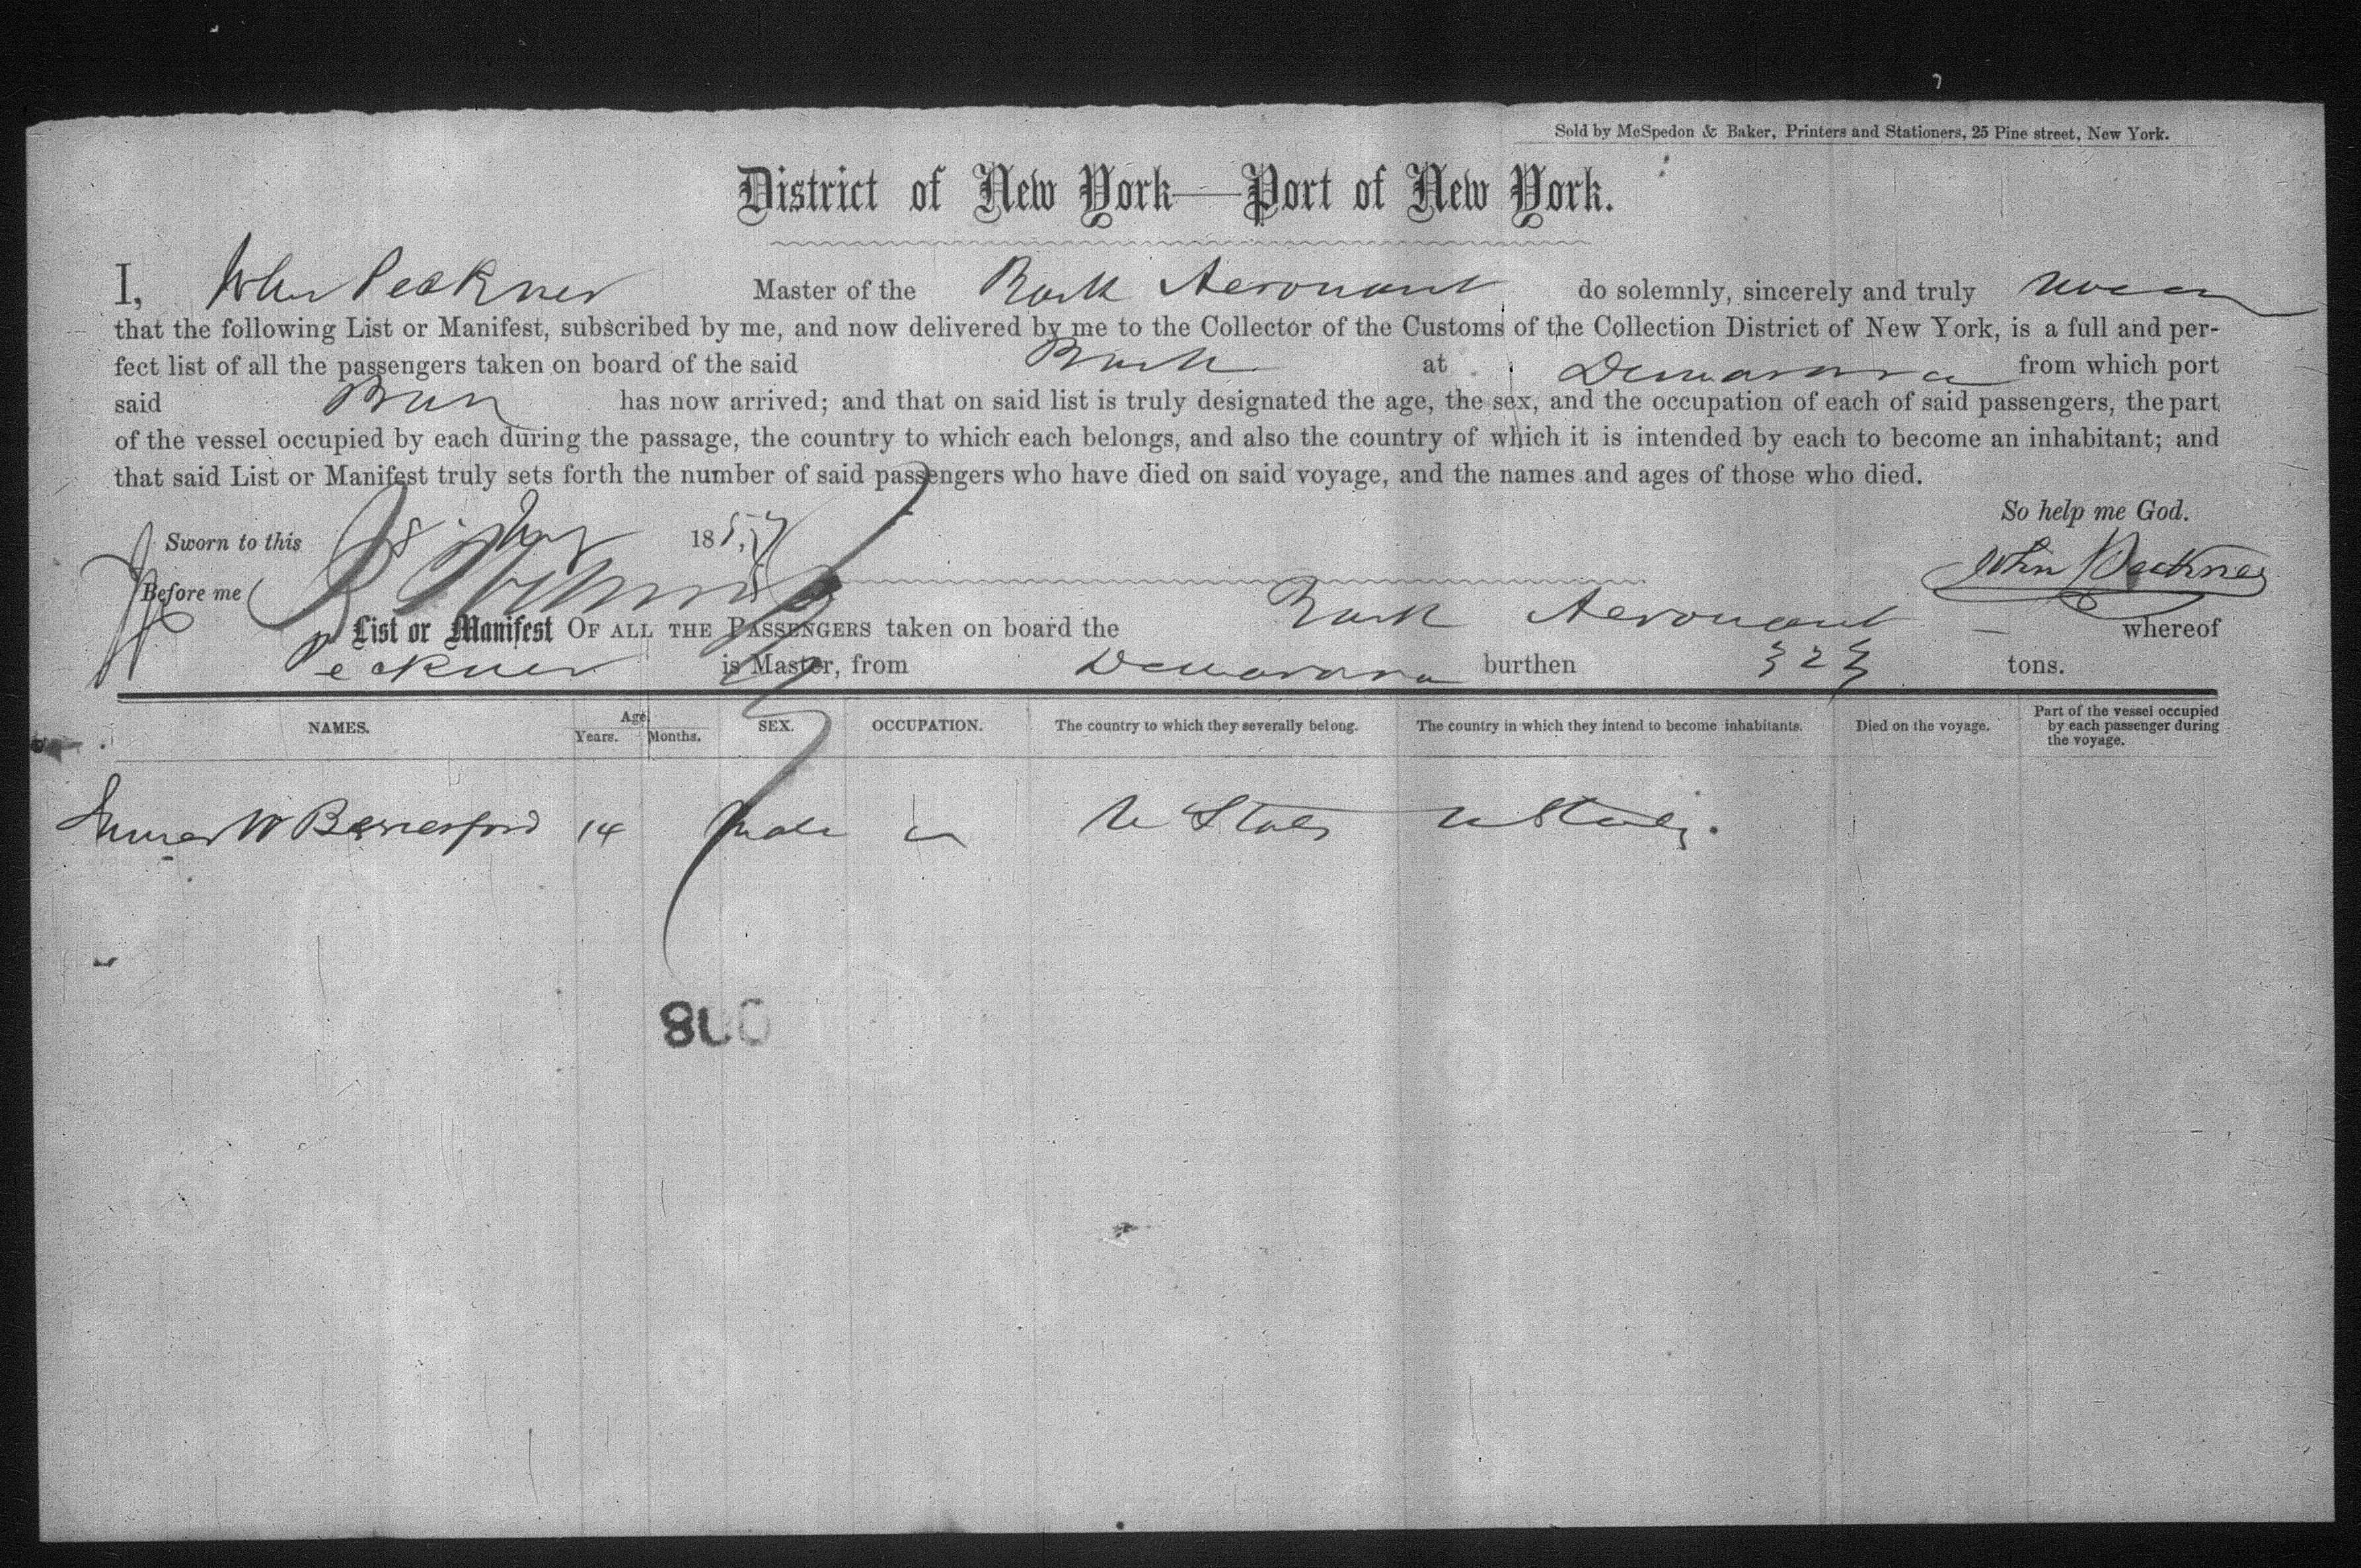 Sold by McSpedon & Baker, Printers and Stationers, 25 Pine street, New York.
District of New York—Port of New York.
I, John Peckner Master of the Bark Aeronaut do solemnly, sincerely and truly
that the following List or Manifest, subscribed by me, and now delivered by me to the Collector of the Customs of the Collection District of New York, is a full and per-
fect list of all the passengers taken on board of the said Bark at Demarara from which port
said Bark has now arrived; and that on said list is truly designated the age, the sex, and the occupation of each of said passengers, the part
of the vessel occupied by each during the passage, the country to which each belongs, and also the country of which it is intended by each to become an inhabitant; and
that said List or Manifest truly sets forth the number of said passengers who have died on said voyage, and the names and ages of those who died.
So help me God.
Sworn to this 185
John Peckner
Before me
List or Manifest OF ALL THE PASSENGERS taken on board the Bark Aeronaut whereof
Peckner is Master, from Demarara burthen 323 tons.
NAMES. Age. Years. Months. SEX. OCCUPATION. The country to which they severally belong. The country in which they intend to become inhabitants. Died on the voyage. Part of the vessel occupied by each passenger during the voyage.
W 14 Male U States U States.
800